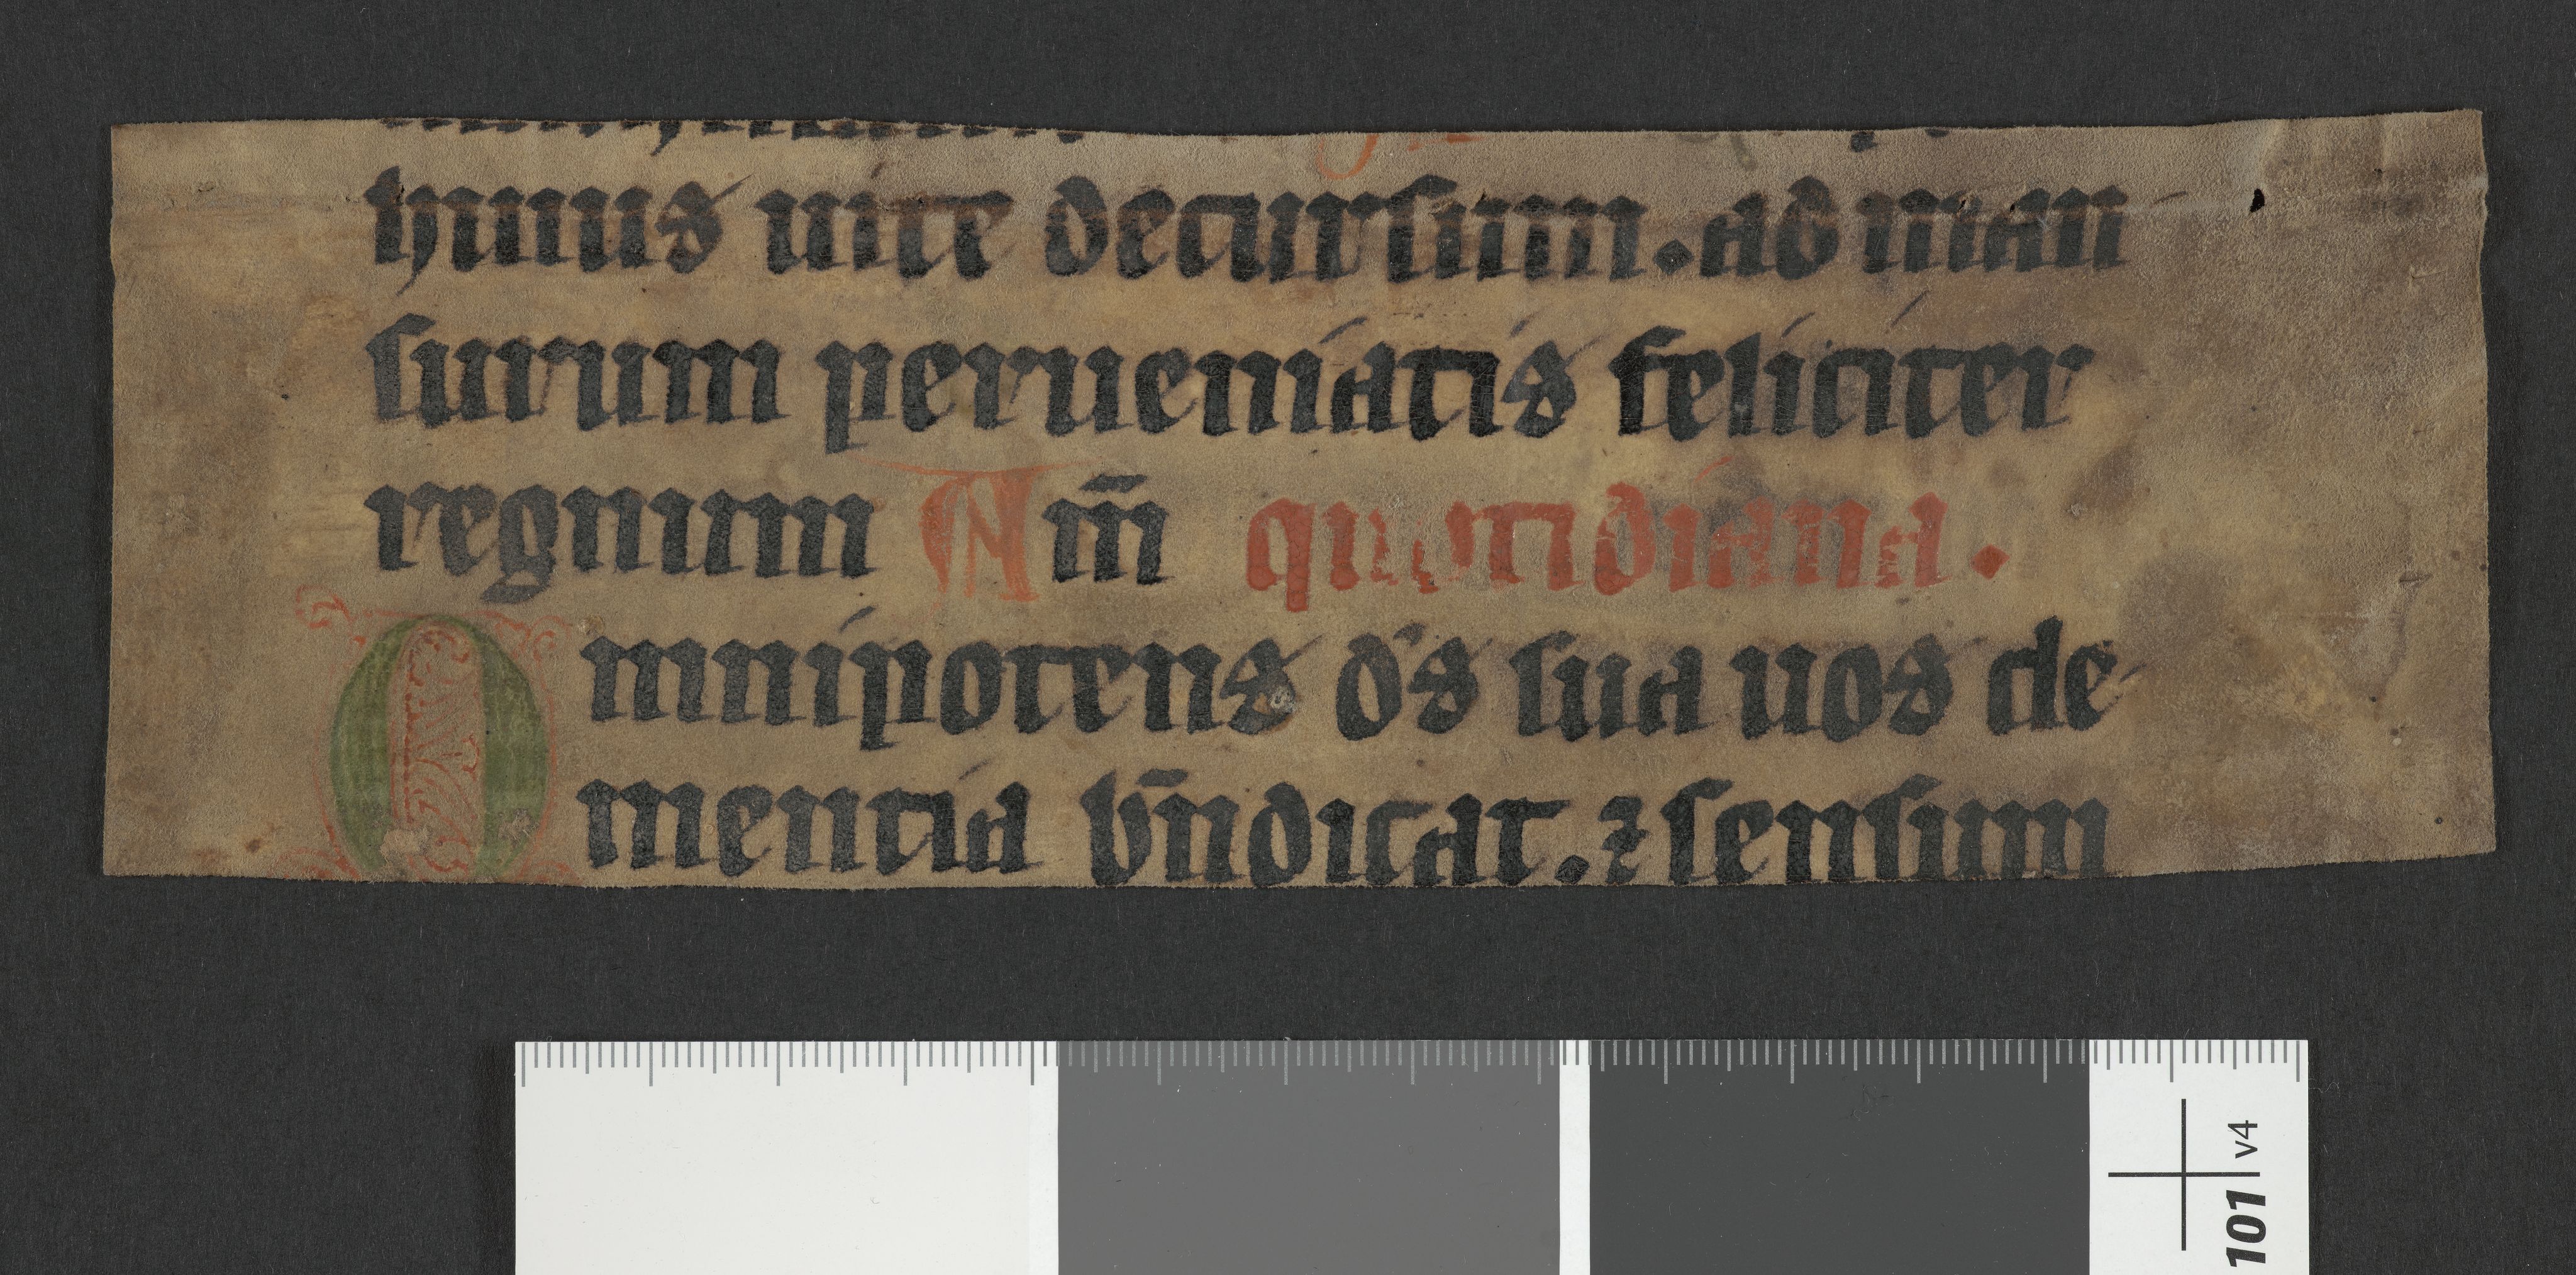 huius uite decursum. ad man
surum perueniatis feliciter
regnum Am̄ quotidiana.
Omnipotens d's sua uos cle
mentia bn̄dicat. ⁊ sensum
101 v4